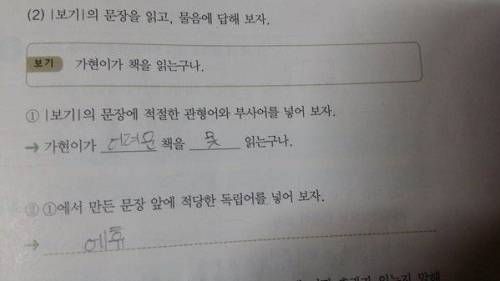 (2) |보기|의 문장을 읽고, 물음에 답해 보자.
보기 가현이가 책을 읽는구나.
① |보기|의 문장에 적절한 관형어와 부사어를 넣어 보자.
→ 가현이가 어려운 책을 못 읽는구나.
② ①에서 만든 문장 앞에 적당한 독립어를 넣어 보자.
→ 에휴